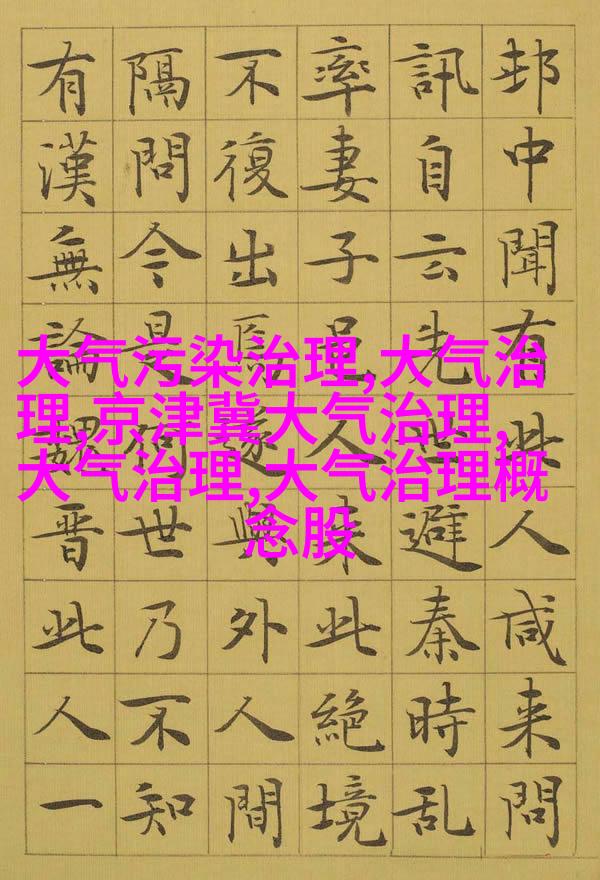 邨中聞有此人咸来問
訊自云先世避秦時乱
率妻子邑人来此絕境
不復出焉遂與外人間
隔問今是何世乃不知
有漢無論魏晋此人一
大气污染治理,大气治
理,京津冀大气治理,
大气治理,大气治理概
念股